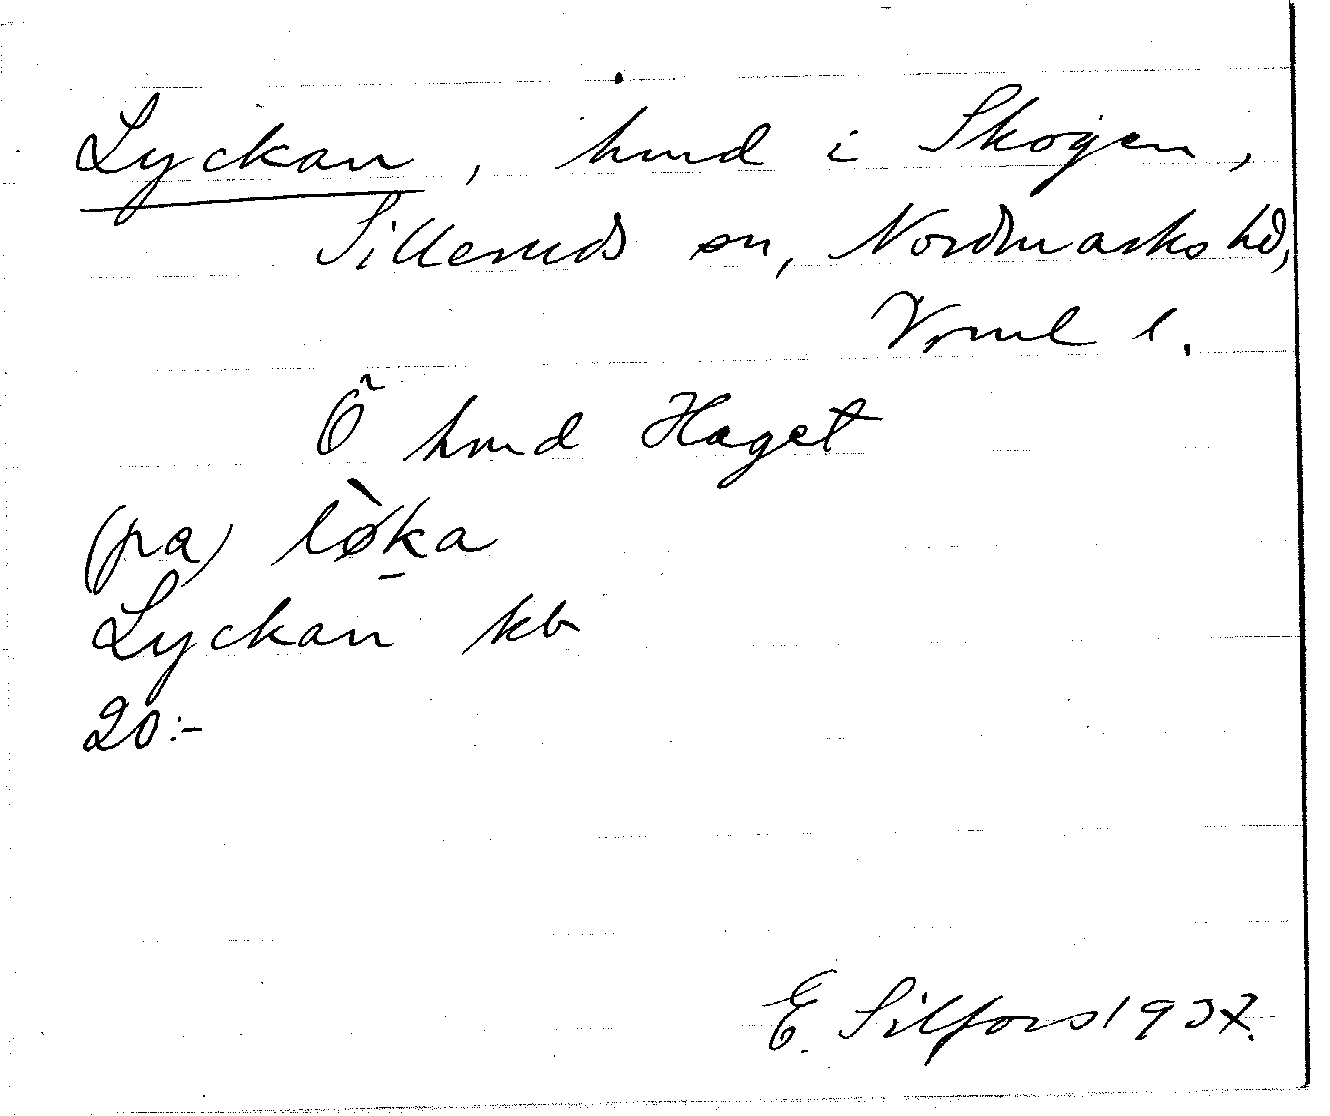 Lyckan, hmd i Skogen,
Silleruds sn, Nordmarks hd,
Vrml l.
Ö hmd Haget
(pa) lø̀ka
Lyckan kb
20:-
E. Silfors 1937.